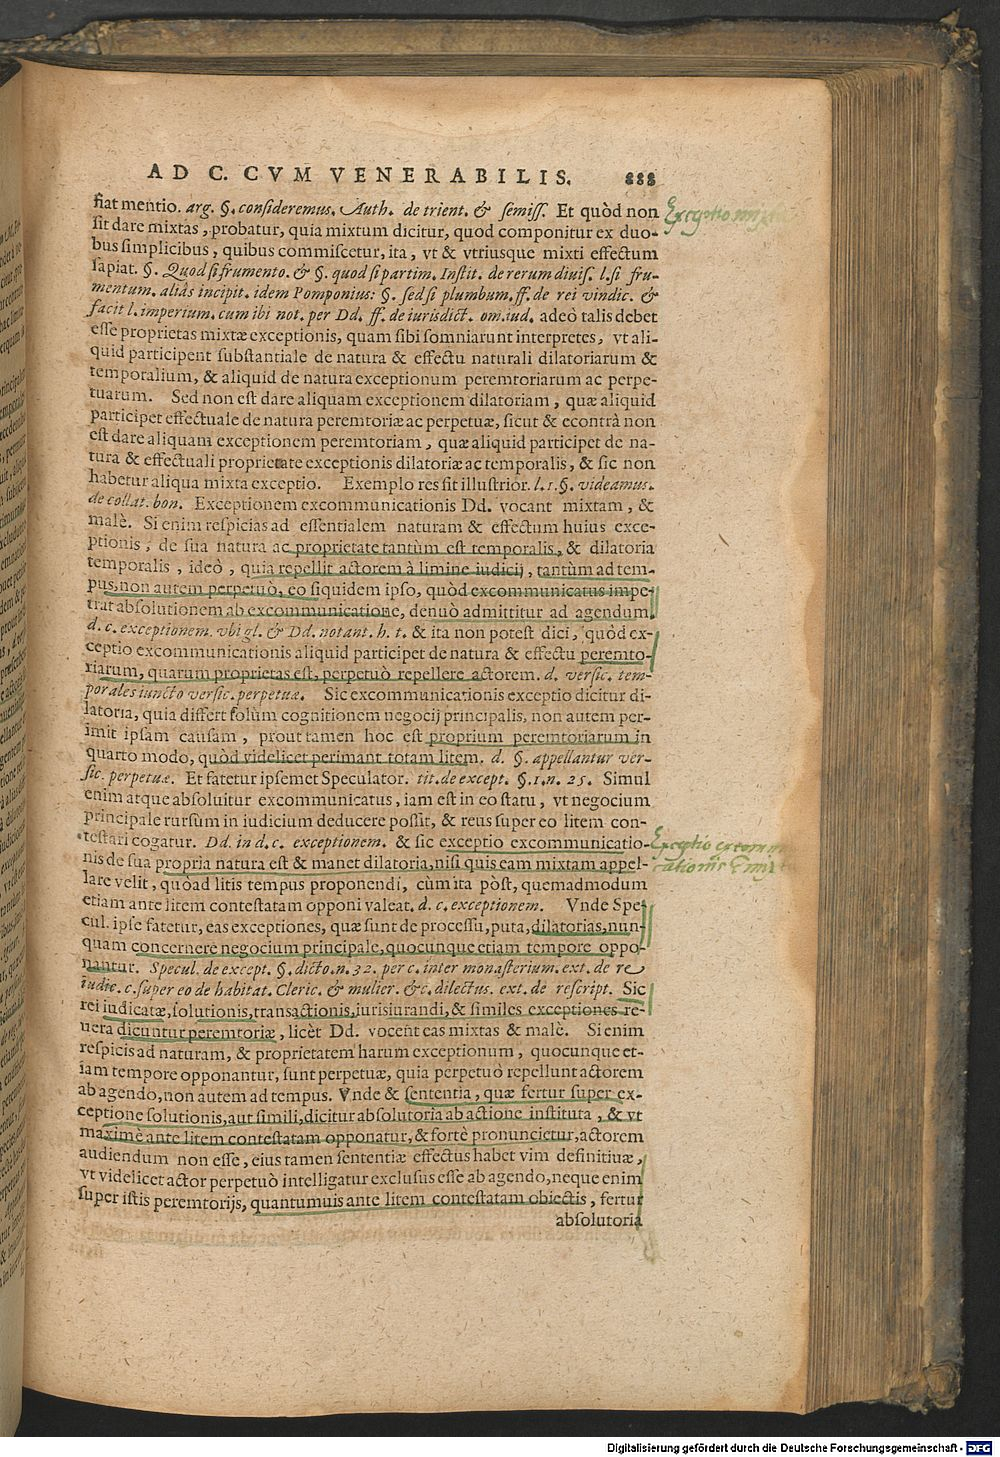 AD C. CVM VENERABILIS. 888
fiat mentio. arg. §. consideremus. Auth. de trient. & semiss. Et quòd non
sit dare mixtas, probatur, quia mixtum dicitur, quod componitur ex duo-
bus simplicibus, quibus commiscetur, ita, vt & vtriusque mixti effectum
sapiat. §. Quod si frumento. & §. quod si partim. Instit. de rerum diuis. l. si fru-
mentum. aliàs incipit. idem Pomponius: §. sed si plumbum. ff. de rei vindic. &
facit l. imperium. cum ibi not. per Dd. ff. de iurisdict. om. iud. adeò talis debet
esse proprietas mixtæ exceptionis, quam sibi somniarunt interpretes, vt ali-
quid participent substantiale de natura & effectu naturali dilatoriarum &
temporalium, & aliquid de natura exceptionum peremtoriarum ac perpe-
tuarum. Sed non est dare aliquam exceptionem dilatoriam, quæ aliquid
participet effectuale de natura peremtoriæ ac perpetuæ, sicut & econtrà non
est dare aliquam exceptionem peremtoriam, quæ aliquid participet de na-
tura & effectuali proprietate exceptionis dilatoriæ ac temporalis, & sic non
habetur aliqua mixta exceptio. Exemplo res sit illustrior. l. 1. §. videamus.
de collat. bon. Exceptionem excommunicationis Dd. vocant mixtam, &
malè. Si enim respicias ad essentialem naturam & effectum huius exce-
ptionis, de sua natura ac proprietate tantùm est temporalis, & dilatoria
temporalis, ideò, quia repellit actorem à limine iudicij, tantùm ad tem-
pus, non autem perpetuò, eo siquidem ipso, quòd excommunicatus impe-
trat absolutionem ab excommunicatione, denuò admittitur ad agendum.
d. c. exceptionem. vbi gl. & Dd. notant. h. t. & ita non potest dici, quòd ex-
ceptio excommunicationis aliquid participet de natura & effectu peremto-
riarum, quarum proprietas est, perpetuò repellere actorem. d. versic. tem-
porales iuncto versic. perpetuæ. Sic excommunicationis exceptio dicitur di-
latoria, quia differt solùm cognitionem negocij principalis, non autem per-
imit ipsam causam, prout tamen hoc est proprium peremtoriarum in
quarto modo, quòd videlicet perimant totam litem. d. §. appellantur ver-
sic. perpetuæ. Et fatetur ipsemet Speculator. tit. de except. §. 1. n. 25. Simul
enim atque absoluitur excommunicatus, iam est in eo statu, vt negocium
principale rursùm in iudicium deducere possit, & reus super eo litem con-
testari cogatur. Dd. in d. c. exceptionem. & sic exceptio excommunicatio-
nis de sua propria natura est & manet dilatoria, nisi quis eam mixtam appel-
lare velit, quòad litis tempus proponendi, cùm ita pòst, quemadmodum
etiam ante litem contestatam opponi valeat. d. c. exceptionem. Vnde Spe-
cul. ipse fatetur, eas exceptiones, quæ sunt de processu, puta, dilatorias, nun-
quam concernere negocium principale, quocunque etiam tempore oppo-
nantur. Specul. de except. §. dicto. n. 32. per c. inter monasterium. ext. de re
iudic. c. super eo de habitat. Cleric. & mulier. &c. dilectus. ext. de rescript. Sic
rei iudicatæ, solutionis, transactionis, iurisiurandi, & similes exceptiones re-
uera dicuntur peremtoriæ, licèt Dd. vocent eas mixtas & malè. Si enim
respicis ad naturam, & proprietatem harum exceptionum, quocunque et-
iam tempore opponantur, sunt perpetuæ, quia perpetuò repellunt actorem
ab agendo, non autem ad tempus. Vnde & sententia, quæ fertur super ex-
ceptione solutionis, aut simili, dicitur absolutoria ab actione instituta, & vt
maximè ante litem contestatam opponatur, & fortè pronuncietur, actorem
audiendum non esse, eius tamen sententiæ effectus habet vim definitiuæ,
vt videlicet actor perpetuò intelligatur exclusus esse ab agendo, neque enim
super istis peremtorijs, quantumuis ante litem contestatam obiectis, fertur
absolutoria
Exceptio
Exceptio
Digitalisierung gefördert durch die Deutsche Forschungsgemeinschaft - DFG